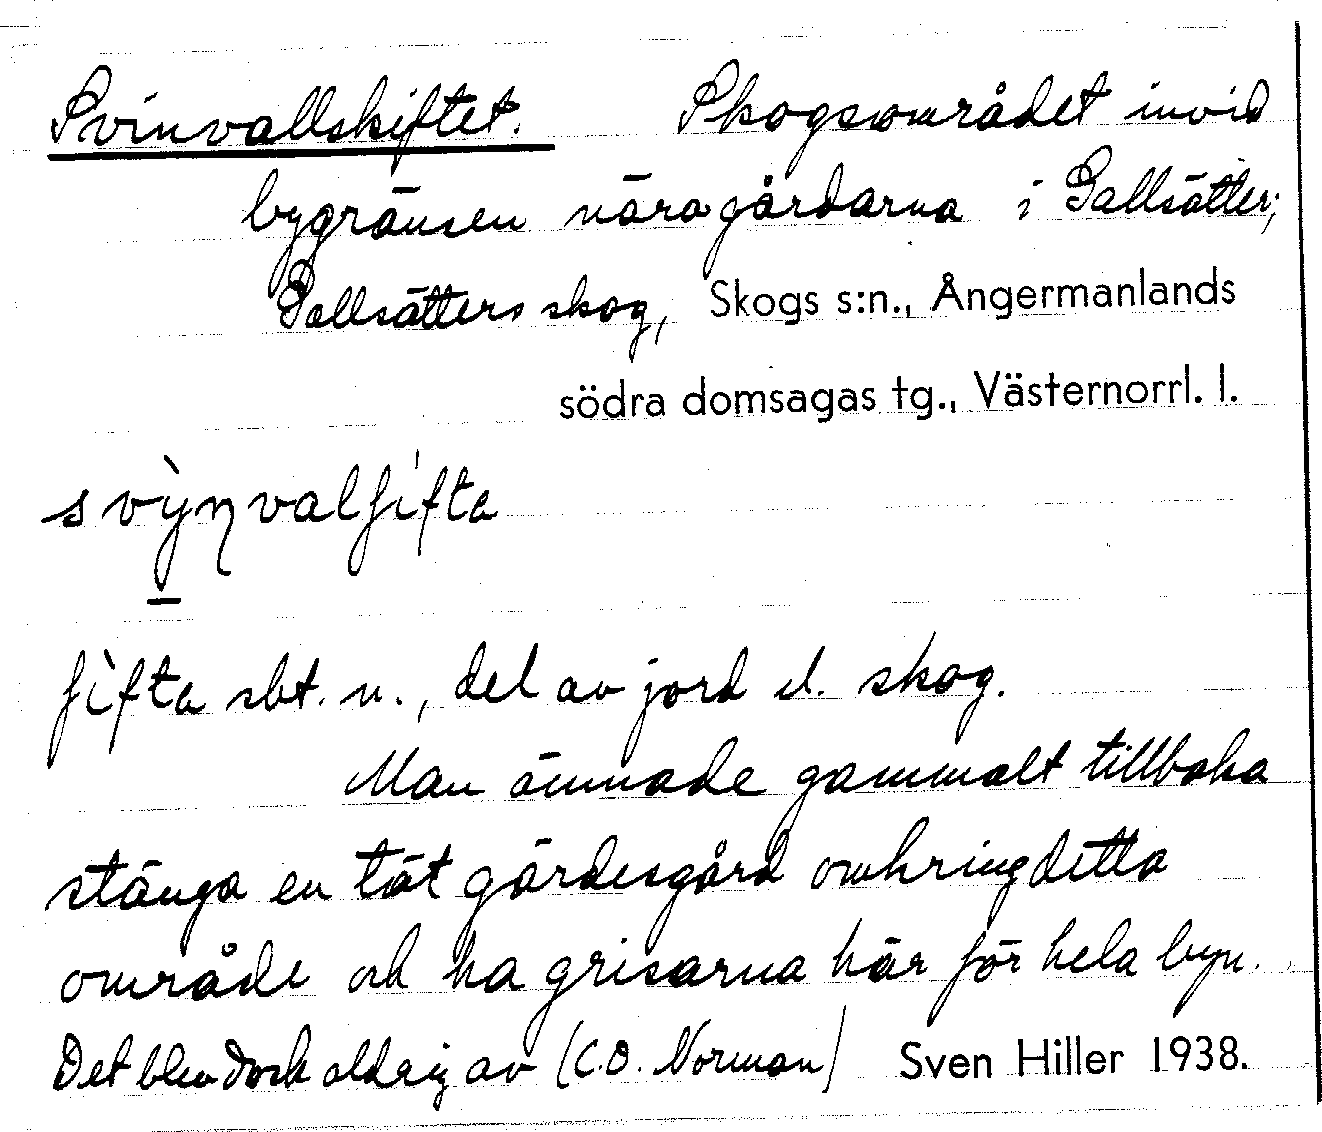 Svinvallskiftet. Skogsområdet invid
bygränsen nära gårdarna i Gallsätter;
Gallsätters skog, Skogs s:n., Ångermanlands
södra domsagas tg., Västernorrl. l.
svỳn̥valʃifta
ʃìfta sbt. n., del av jord el. skog.
Man ämnade gammalt tillbaka
stänga en tät gärdesgård omkring detta
område och ha grisarna här för hela byn.
Det blev dock aldrig av (C.O. Norman) Sven Hiller 1938.